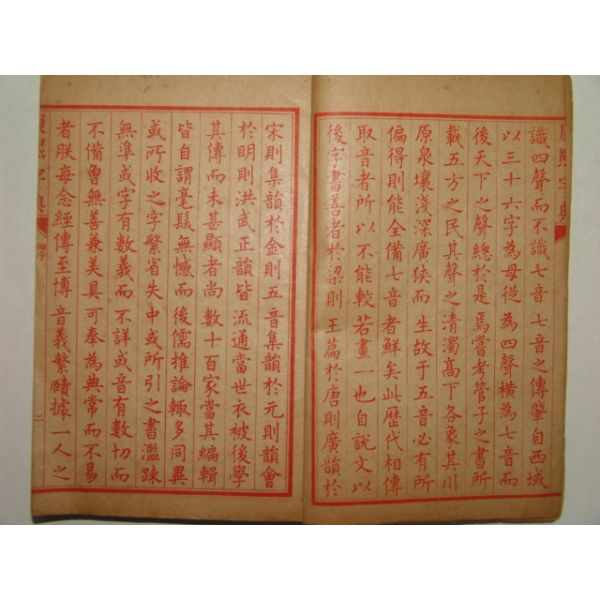 識四聲而不識七音七音之傳肇自西域
以三十六字為母從為四聲橫為七音而
後天下之聲總於是焉嘗考管子之書所
載五方之民其聲之清濁高下各象其川
原泉壤淺深廣狹而生故于五音必有所
偏得則能全備七音者鮮矣此歷代相傳
取音者所以不能較若畫一也自說文以
後字書善者於梁則王篇於唐則廣韻於
宋則集韻於金則五音集韻於元則韻會
於明則洪武正韻皆流通當世衣被後學
其傳而未甚顯者尚數十百家當其編輯
皆自謂毫髮無憾而後儒推論輒多同異
或所收之字繁省失中或所引之書濫踈
無準或字有數義而不詳或音有數切而
不備曾無善兼美具可奉為典常而不易
者朕每念經傳至博音義繁賾據一人之
康熙字典